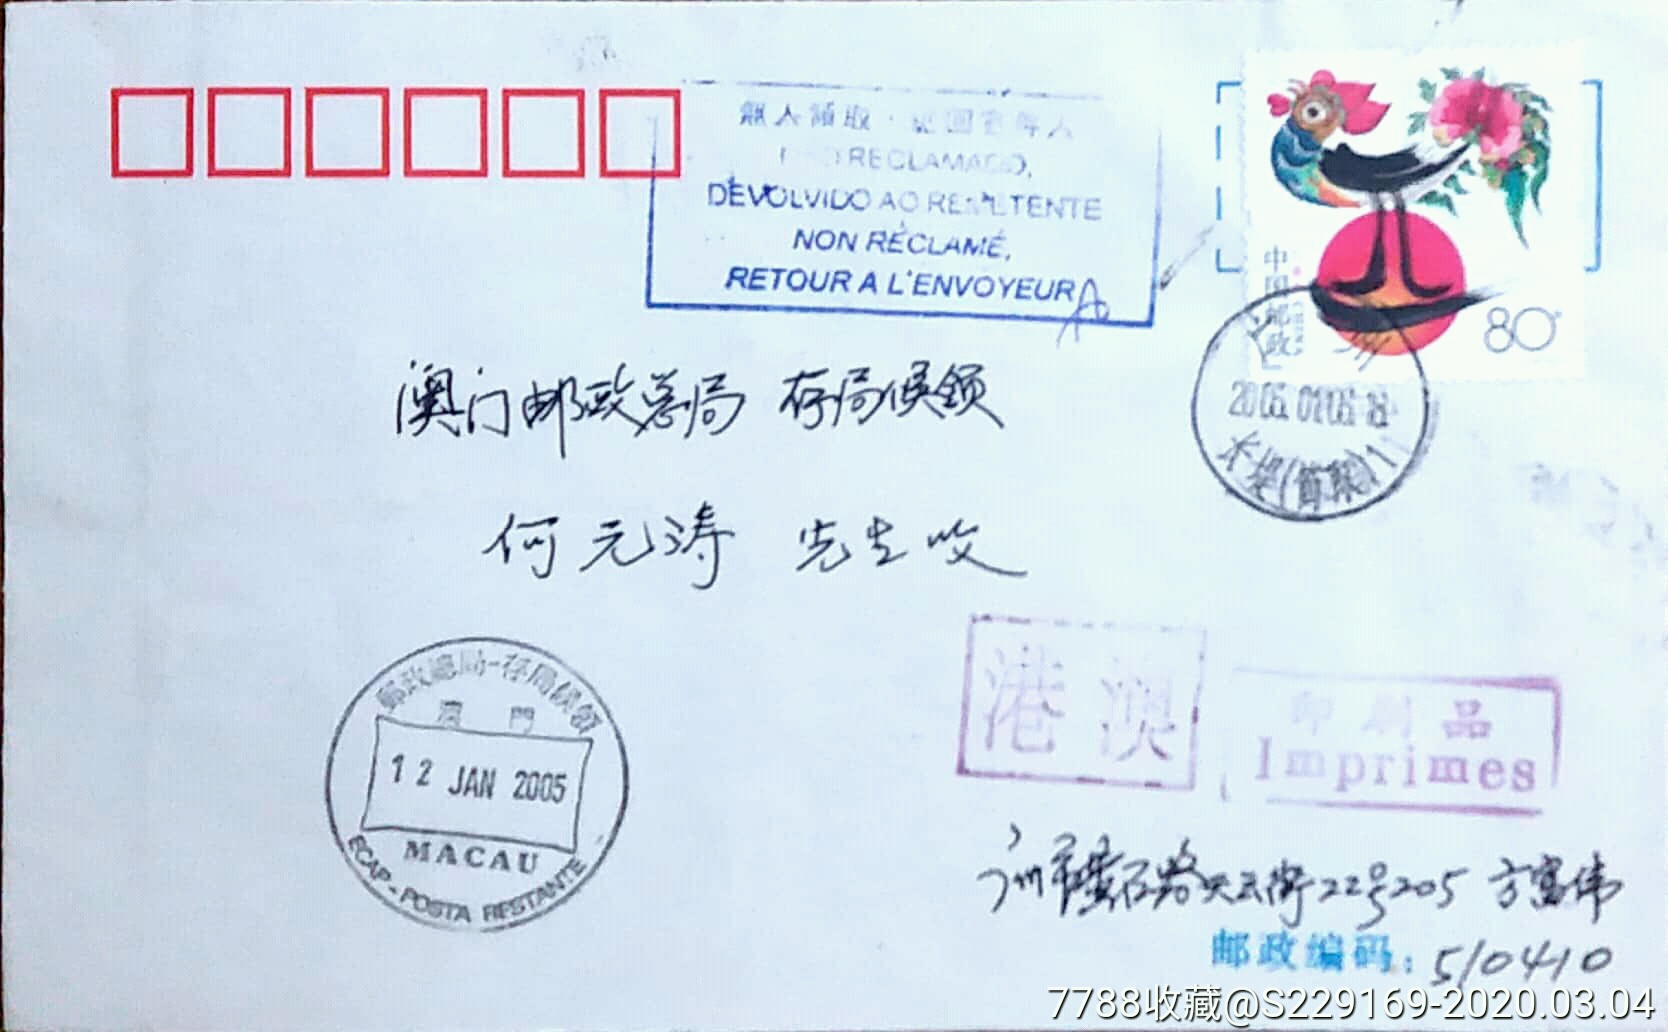 無人領取．退回寄件人
NÃO RECLAMADO,
DEVOLVIDO AO REMETENTE
NON RÉCLAMÉ,
RETOUR A L'ENVOYEUR
中国邮政
80分
2005.01.06.18
澳门邮政总局 存局候领
何元涛 先生收
郵政總局-存局候領
澳 門
12 JAN 2005
MACAU
ECAP-POSTA RESTANTE
港澳
印刷品
Imprimes
广州市黄石路天云街22号205 方富伟
邮政编码：510410
7788收藏@S229169-2020.03.04